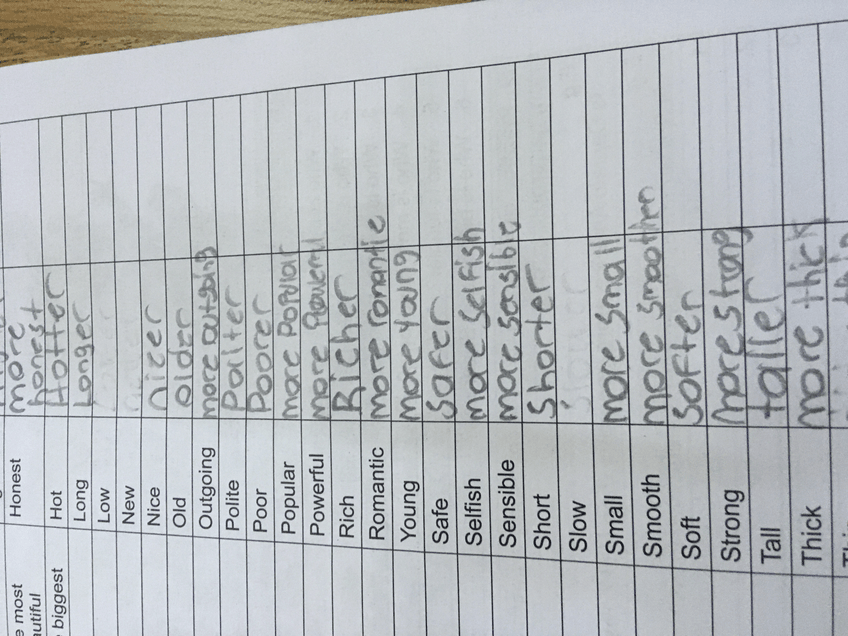 Honest more honest
Hot Hotter
Long Longer
Low
New
Nice nicer
Old older
Outgoing more outgoing
Polite Politer
Poor Poorer
Popular more Popular
Powerful more Powerful
Rich Richer
Romantic more romantic
Young more young
Safe Safer
Selfish more selfish
Sensible more sensible
Short Shorter
Slow
Small more small
Smooth more smoother
Soft Softer
Strong more strong
Tall taller
Thick more thick
most
biggest